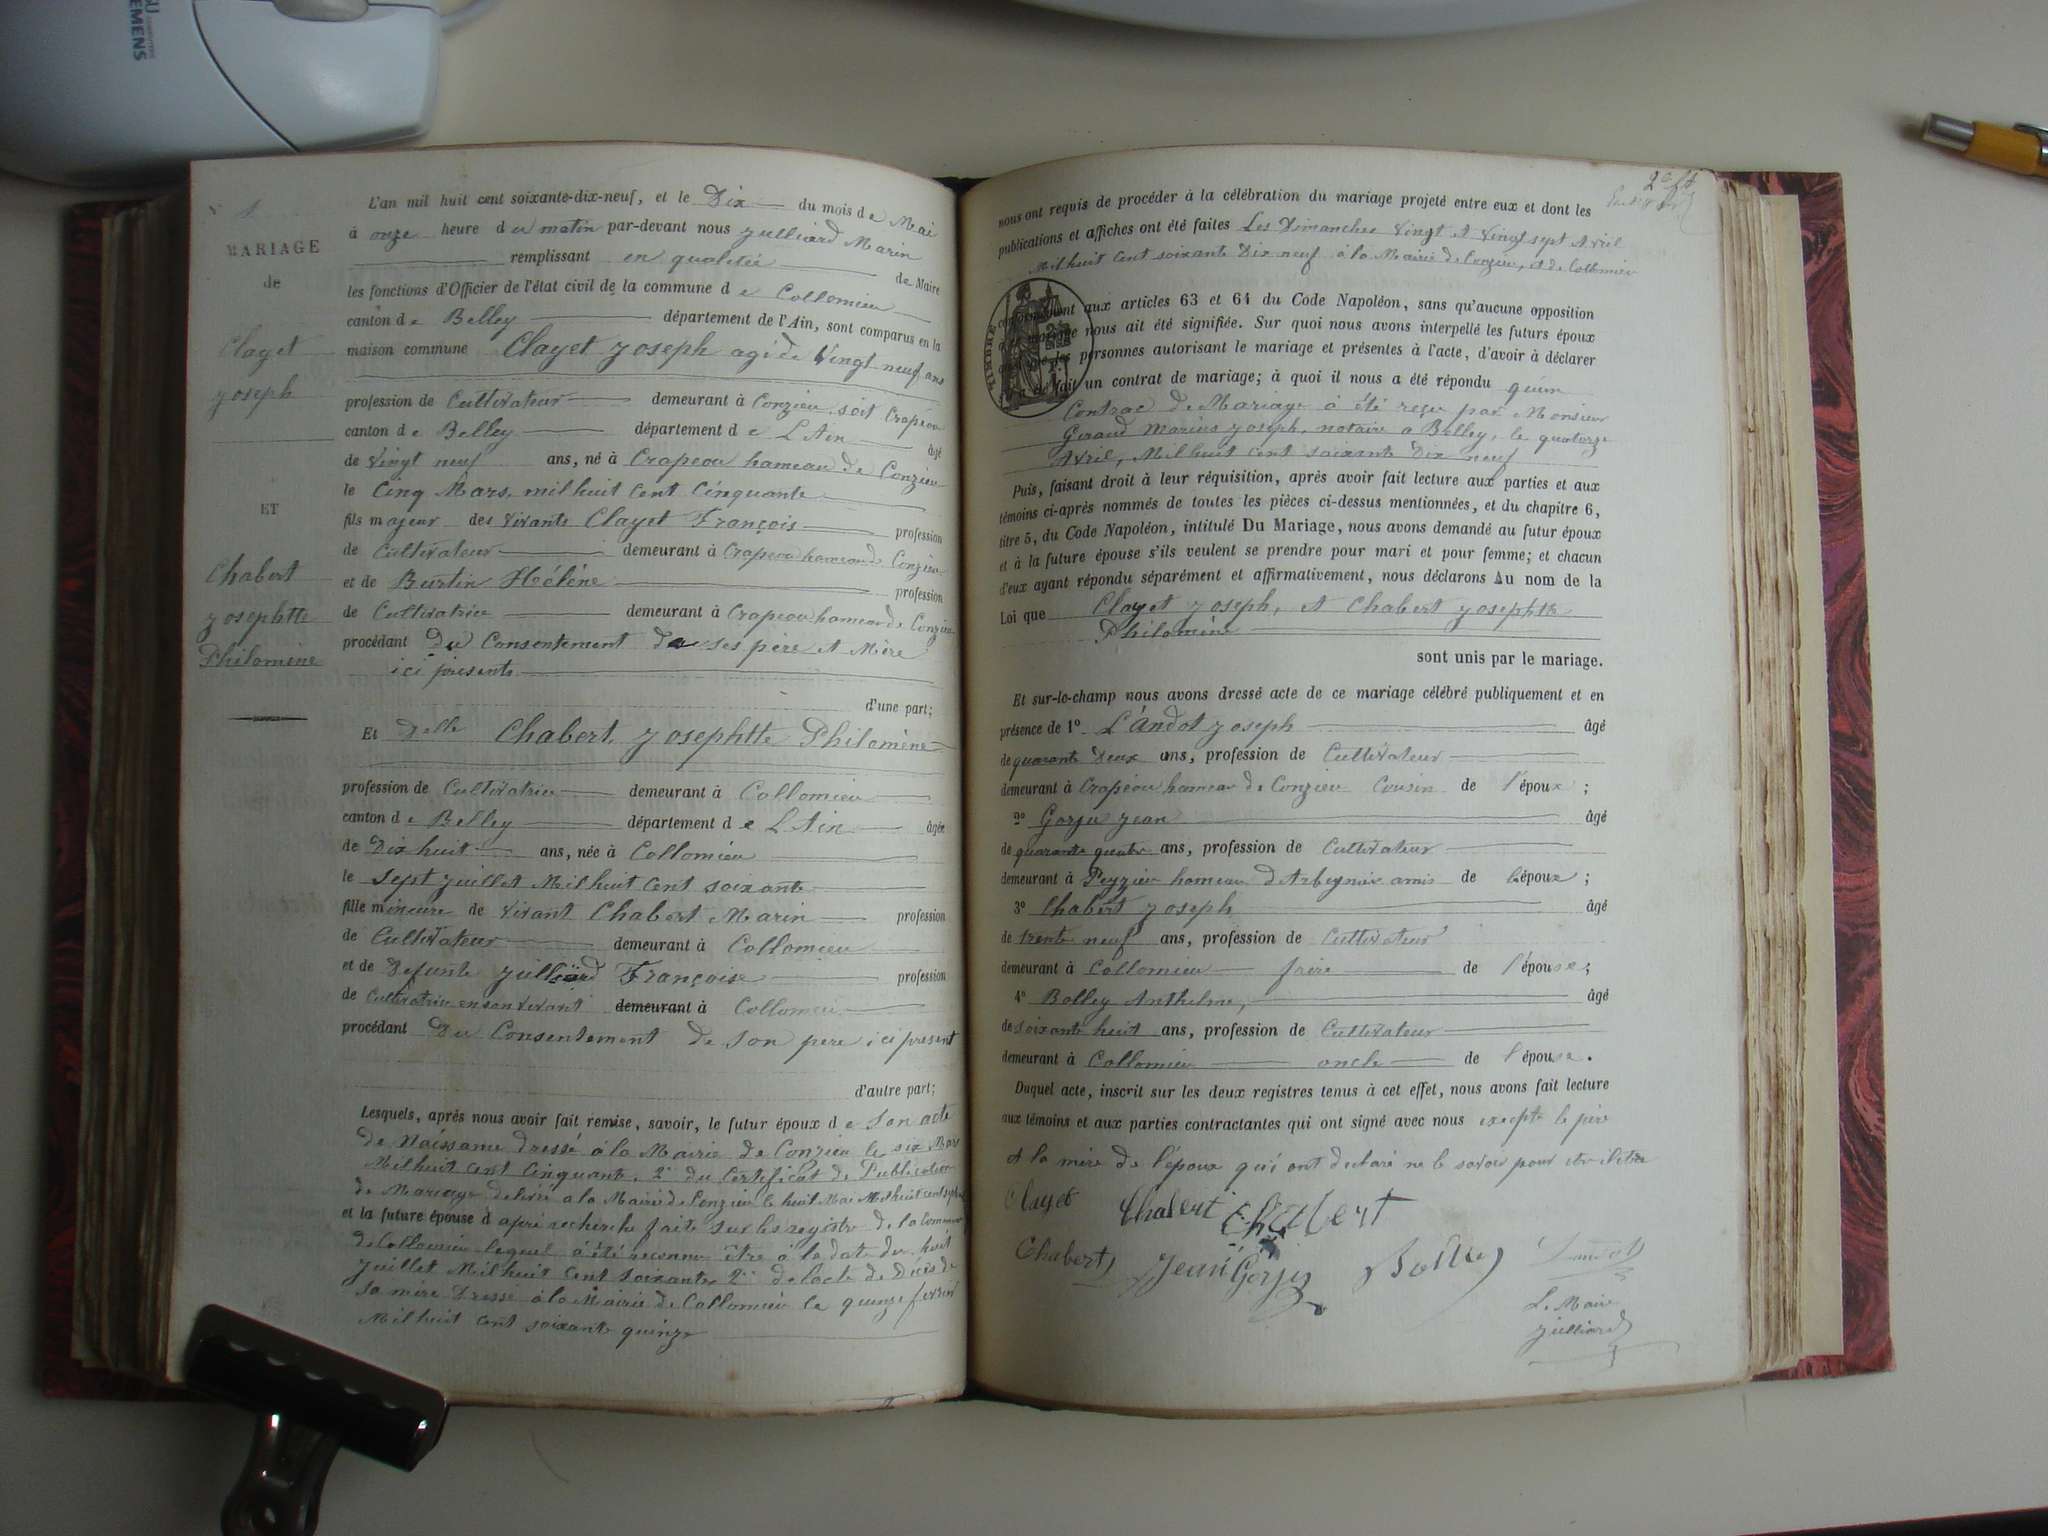 SIEMENS
MARIAGE
de
Clayet
Joseph
ET
Chabert
Josephtte
Philomène
L'an mil huit cent soixante-dix-neuf, et le Dix du mois de Mai
à onze heure du matin par-devant nous Julliard Marin
remplissant en qualitée de Maire
les fonctions d'Officier de l'état civil de la commune de Collomieu
canton de Belley département de l'Ain, sont comparus en la
maison commune Clayet Joseph agé de Vingt neuf ans
profession de Cultivateur demeurant à Conzieu, soit Crapéou
canton de Belley département de L'Ain âgé
de Vingt neuf ans, né à Crapeou hameau de Conzieu
le Cinq Mars, mil huit cent Cinquante
fils majeur des vivants Clayet François profession
de Cultivateur demeurant à Crapeou hameau de Conzieu
et de Burtin Hélène profession
de Cultivatrice demeurant à Crapeou hameau de Conzieu
procédant du Consentement de ses père et Mère
ici présents
d'une part;
Et Delle Chabert, Josephtte Philomène
profession de Cultivatrice demeurant à Collomieu
canton de Belley département de L'Ain âgée
de Dix huit ans, née à Collomieu
le Sept Juillet Mil huit cent soixante
fille mineure de Vivant Chabert Marin profession
de Cultivateur demeurant à Collomieu
et de Défunte Julliard Françoise profession
de Cultivatrice en son vivant demeurant à Collomieu
procédant Du Consentement de son pere ici présent
d'autre part;
Lesquels, après nous avoir fait remise, savoir, le futur époux de Son acte
de Naissance dressé à la Mairie de Conzieu le six Mars
Mil huit cent Cinquante, 2° du Certificat de Publication
de Mariage delivré a la Mairie de Conzieu le huit Mai Mil huit cent
et la future épouse d après recherche faite sur les registre de la Commune
de Collomieu lequel à été reconnu être à la date du huit
Juillet Mil huit cent soixante 2° de l'acte de Décès de
Sa mère Dressé à la Mairie de Collomieu le quinze fevrier
Mil huit cent soixante quinze
nous ont requis de procéder à la célébration du mariage projeté entre eux et dont les
publications et affiches ont été faites Les Dimanches Vingt et Vingt sept Avril
Mil huit cent soixante Dix neuf à la Mairie de Conzieu, et de Collomieu
TIMBRE
conformément aux articles 63 et 64 du Code Napoléon, sans qu'aucune opposition
nous ait été signifiée. Sur quoi nous avons interpellé les futurs époux
personnes autorisant le mariage et présentes à l'acte, d'avoir à déclarer
fait un contrat de mariage; à quoi il nous a été répondu qu'un
Contrac de Mariage à été reçu par Monsieur
Giraud Marius Joseph, notaire a Belley, le quatorze
Avril, Mil huit cent soixante Dix neuf
Puis, faisant droit à leur réquisition, après avoir fait lecture aux parties et aux
témoins ci-après nommés de toutes les pièces ci-dessus mentionnées, et du chapitre 6,
titre 5, du Code Napoléon, intitulé Du Mariage, nous avons demandé au futur époux
et à la future épouse s'ils veulent se prendre pour mari et pour femme; et chacun
d'eux ayant répondu séparément et affirmativement, nous déclarons Au nom de la
Loi que Clayet Joseph, et Chabert Josephtte
Philomène
sont unis par le mariage.
Et sur-le-champ nous avons dressé acte de ce mariage célébré publiquement et en
présence de 1° L'Andot Joseph âgé
de quarante Deux ans, profession de Cultivateur
demeurant à Crapéou hameau de Conzieu Cousin de l'époux;
2° Gorju Jean âgé
de quarante quatre ans, profession de Cultivateur
demeurant à Peyzieu hameau d'Arbignieu amis de l'époux;
3° Chabert Joseph âgé
de trente neuf ans, profession de Cultivateur
demeurant à Collomieu frère de l'épouse;
4° Bolley Anthelme, âgé
de soixante huit ans, profession de Cultivateur
demeurant à Collomieu oncle de l'épouse.
Duquel acte, inscrit sur les deux registres tenus à cet effet, nous avons fait lecture
aux témoins et aux parties contractantes qui ont signé avec nous excepté le père
et la mère de l'époux qui ont déclaré ne le savoir pour être iletré
Clayet Chabert Chabert
Chabert Jean Gorju Bolley Landot
Le Maire
Julliard